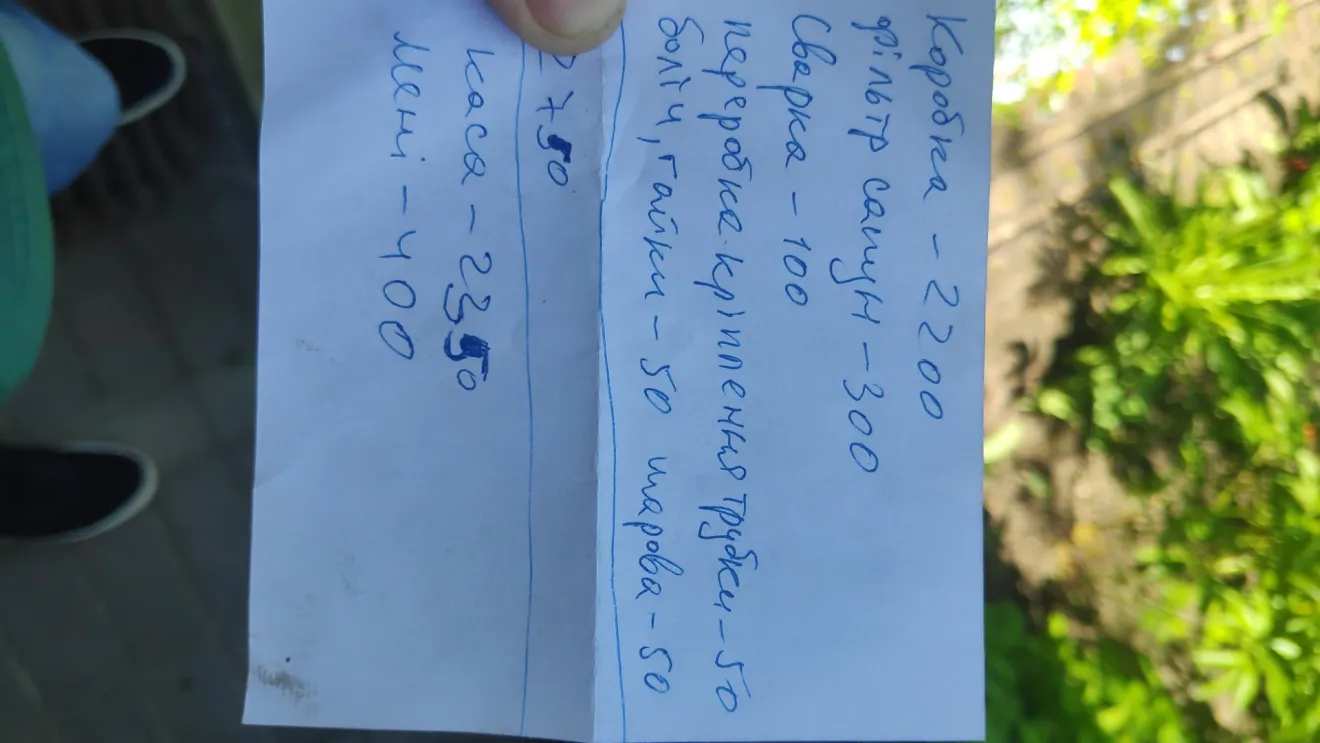 Коробка - 2200
фільтр сапун - 300
Сварка - 100
переробка кріплення трубки - 50
болти, гайки - 50 шарова - 50
2750
Каса - 2350
Мені - 400